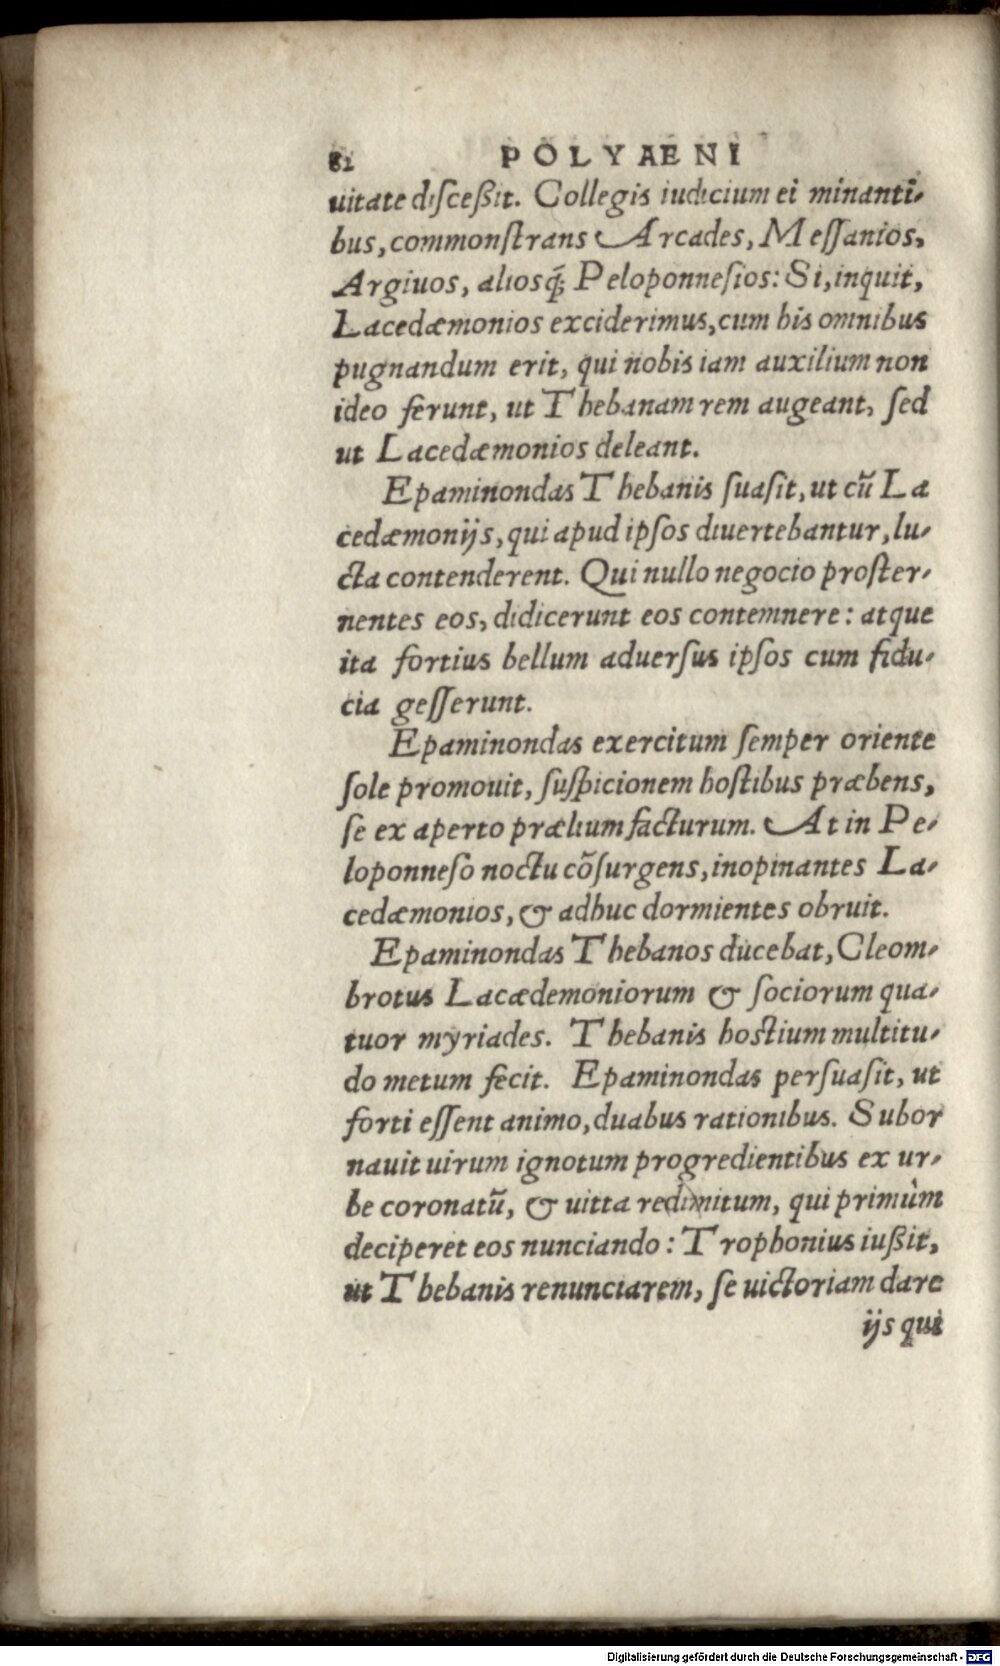 82 POLYAENI
uitate disceßit. Collegis iudicium ei minanti-
bus, commonſtrans Arcades, Meſſanios,
Argiuos, aliosq́; Peloponneſios: Si, inquit,
Lacedæmonios exciderimus, cum his omnibus
pugnandum erit, qui nobis iam auxilium non
ideo ferunt, ut Thebanam rem augeant, ſed
ut Lacedæmonios deleant.
Epaminondas Thebanis ſuaſit, ut cū La
cedæmonijs, qui apud ipſos diuertebantur, lu-
cta contenderent. Qui nullo negocio proſter-
nentes eos, didicerunt eos contemnere: atque
ita fortius bellum aduerſus ipſos cum fidu-
cia geſſerunt.
Epaminondas exercitum ſemper oriente
ſole promouit, ſuſpicionem hoſtibus præbens,
ſe ex aperto prælium facturum. At in Pe-
loponneſo noctu cōſurgens, inopinantes La-
cedæmonios, & adhuc dormientes obruit.
Epaminondas Thebanos ducebat, Cleom-
brotus Lacædemoniorum & ſociorum qua-
tuor myriades. Thebanis hoſtium multitu-
do metum fecit. Epaminondas perſuaſit, ut
forti eſſent animo, duabus rationibus. Subor
nauit uirum ignotum progredientibus ex ur-
be coronatū, & uitta redimitum, qui primùm
deciperet eos nunciando: Trophonius iußit,
ut Thebanis renunciarem, ſe uictoriam dare
ijs qui
Digitalisierung gefördert durch die Deutsche Forschungsgemeinschaft - DFG